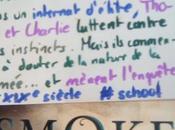 un internat d'élite, Tho-
et Charlie luttent contre
s instincts. Mais ils commen-
à douter de la nature de la
mée... et mènent l'enquête
xixe siècle #school
SMOKE